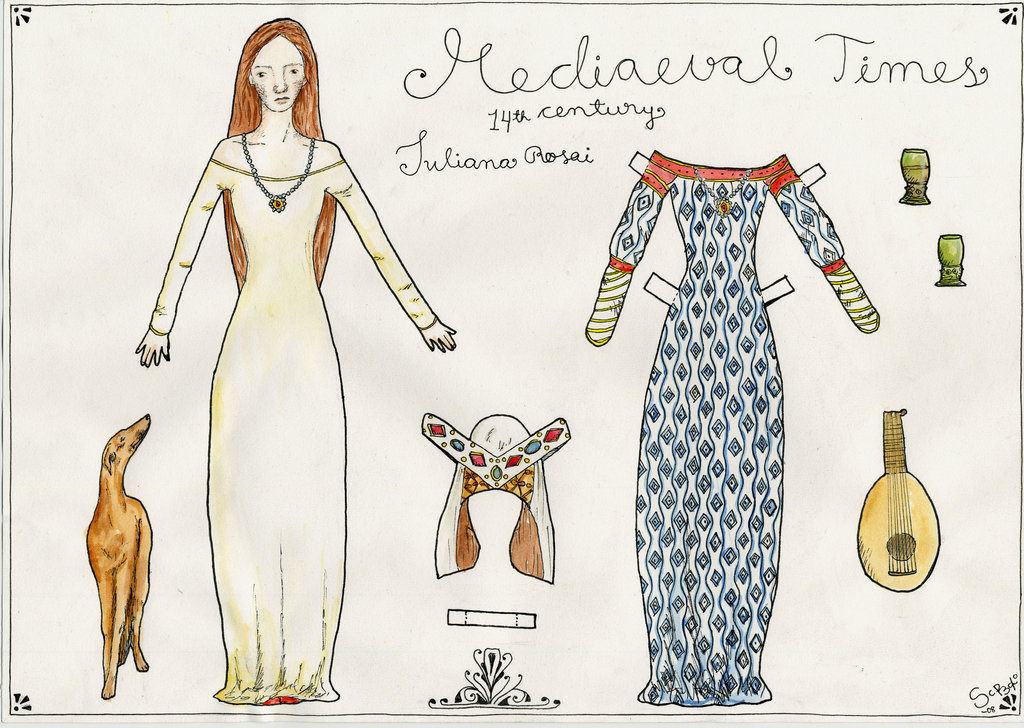 Mediaeval Times
14th century
Juliana Rosai
-08